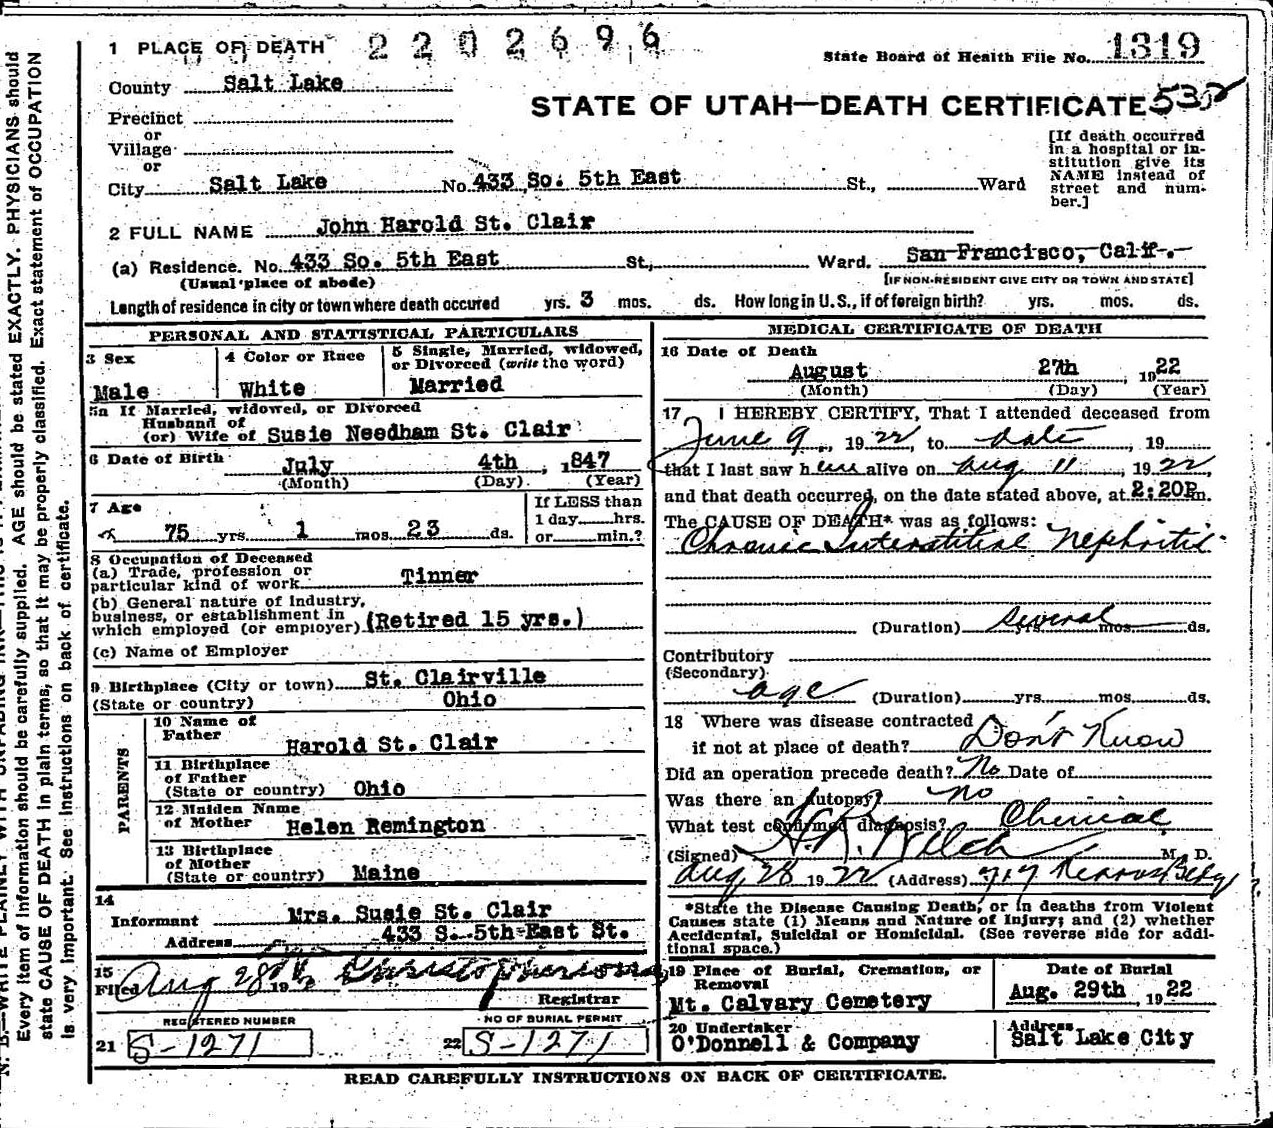 1 PLACE OF DEATH 2202696
State Board of Health File No. 1319
County Salt Lake
STATE OF UTAH—DEATH CERTIFICATE
Precinct
or
Village
or
City Salt Lake No. 433 So. 5th East St., Ward
[If death occurred
in a hospital or in-
stitution give its
NAME instead of
street and num-
ber.]
2 FULL NAME John Harold St. Clair
(a) Residence. No. 433 So. 5th East St, Ward. San Francisco, Calif.
(Usual place of abode) [IF NON-RESIDENT GIVE CITY OR TOWN AND STATE]
Length of residence in city or town where death occured yrs. 3 mos. ds. How long in U.S., if of foreign birth? yrs. mos. ds.
PERSONAL AND STATISTICAL PARTICULARS
3 Sex
Male
4 Color or Race
White
5 Single, Married, widowed,
or Divorced (write the word)
Married
5a If Married, widowed, or Divorced
Husband of
(or) Wife of Susie Needham St. Clair
6 Date of Birth July 4th, 1847
(Month) (Day) (Year)
7 Age
75 yrs. 1 mos. 23 ds.
If LESS than
1 day hrs.
or min.?
8 Occupation of Deceased
(a) Trade, profession or
particular kind of work Tinner
(b) General nature of Industry,
business, or establishment in
which employed (or employer) (Retired 15 yrs.)
(c) Name of Employer
9 Birthplace (City or town) St. Clairville
(State or country) Ohio
PARENTS
10 Name of
Father
Harold St. Clair
11 Birthplace
of Father
(State or country) Ohio
12 Maiden Name
of Mother Helen Remington
13 Birthplace
of Mother
(State or country) Maine
14
Informant Mrs. Susie St. Clair
Address 433 S. 5th East St.
15
Filed Aug 28th 19
Registrar
REGISTERED NUMBER NO OF BURIAL PERMIT
21 S-1271 22 S-1271
MEDICAL CERTIFICATE OF DEATH
16 Date of Death
August 27th, 1922
(Month) (Day) (Year)
17 I HEREBY CERTIFY, That I attended deceased from
June 9, 1922 to date, 19
that I last saw him alive on Aug 11, 1922,
and that death occurred, on the date stated above, at 2:20P.m.
The CAUSE OF DEATH* was as follows:
Chronic Interstitial Nephritis
(Duration) Several yrs. mos. ds.
Contributory
(Secondary)
age (Duration) yrs. mos. ds.
18 Where was disease contracted
if not at place of death? Don't Know
Did an operation precede death? No Date of
Was there an autopsy? no
What test confirmed diagnosis? Chemical
(Signed) M. D.
Aug 28 1922 (Address)
*State the Disease Causing Death, or in deaths from Violent
Causes state (1) Means and Nature of Injury; and (2) whether
Accidental, Suicidal or Homicidal. (See reverse side for addi-
tional space.)
19 Place of Burial, Cremation, or
Removal
Mt. Calvary Cemetery
Date of Burial
Aug. 29th, 1922
20 Undertaker
O'Donnell & Company
Address
Salt Lake City
READ CAREFULLY INSTRUCTIONS ON BACK OF CERTIFICATE.
Every item of information should be carefully supplied. AGE should be stated EXACTLY. PHYSICIANS should
state CAUSE OF DEATH in plain terms, so that it may be properly classified. Exact statement of OCCUPATION
is very important. See instructions on back of certificate.